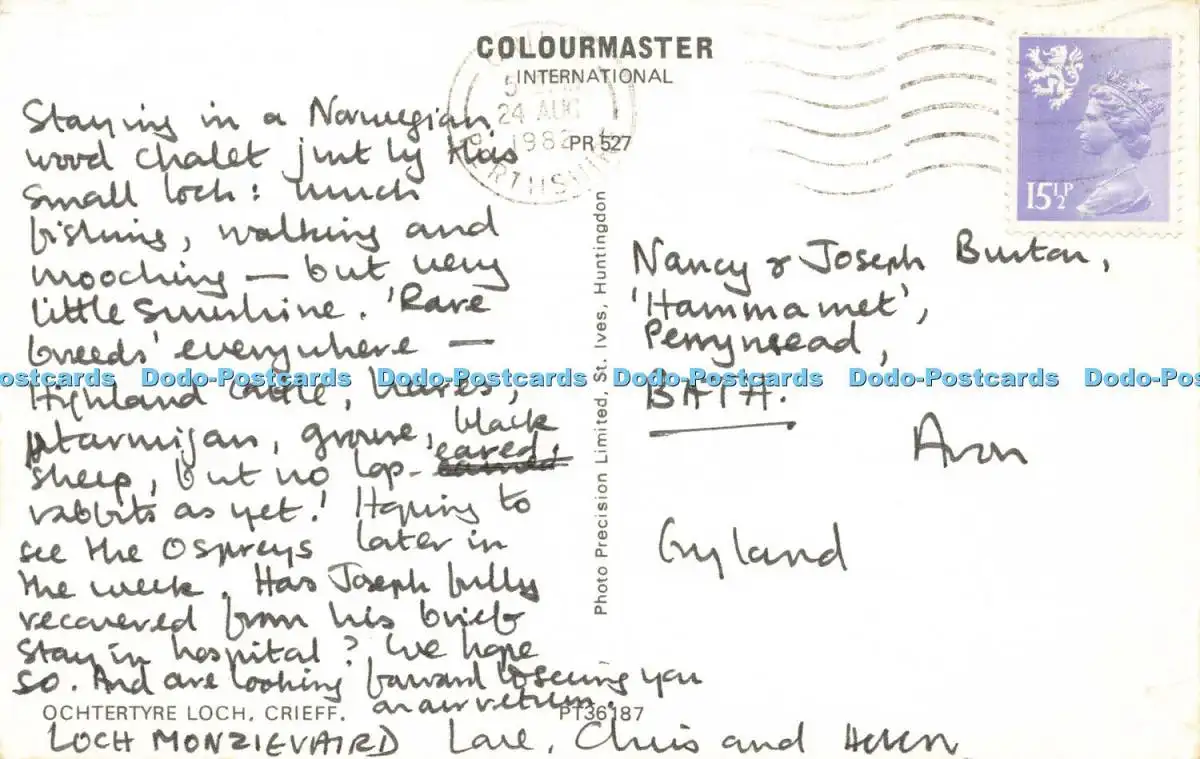 COLOURMASTER
INTERNATIONAL
24 AUG
1982
PR 527
15½P
Staying in a Norwegian
wood chalet just by this
small loch: much
fishing, walking and
mooching — but very
little sunshine. 'Rare
breeds' everywhere —
Highland cattle, hares,
ptarmigan, grouse, black
sheep, but no lop-eared
rabbits as yet! Hoping to
see the Ospreys later in
the week. Has Joseph fully
recovered from his brief
stay in hospital? We hope
so. And are looking forward to seeing you
on our return.
OCHTERTYRE LOCH, CRIEFF.
PT36187
LOCH MONZIEVAIRD Love, Chris and Helen
Photo Precision Limited, St. Ives, Huntingdon
Nancy & Joseph Burton,
'Hammamet',
Perrymead,
BATH.
Avon
England
Dodo-Postcards Dodo-Postcards Dodo-Postcards Dodo-Postcards Dodo-Postcards